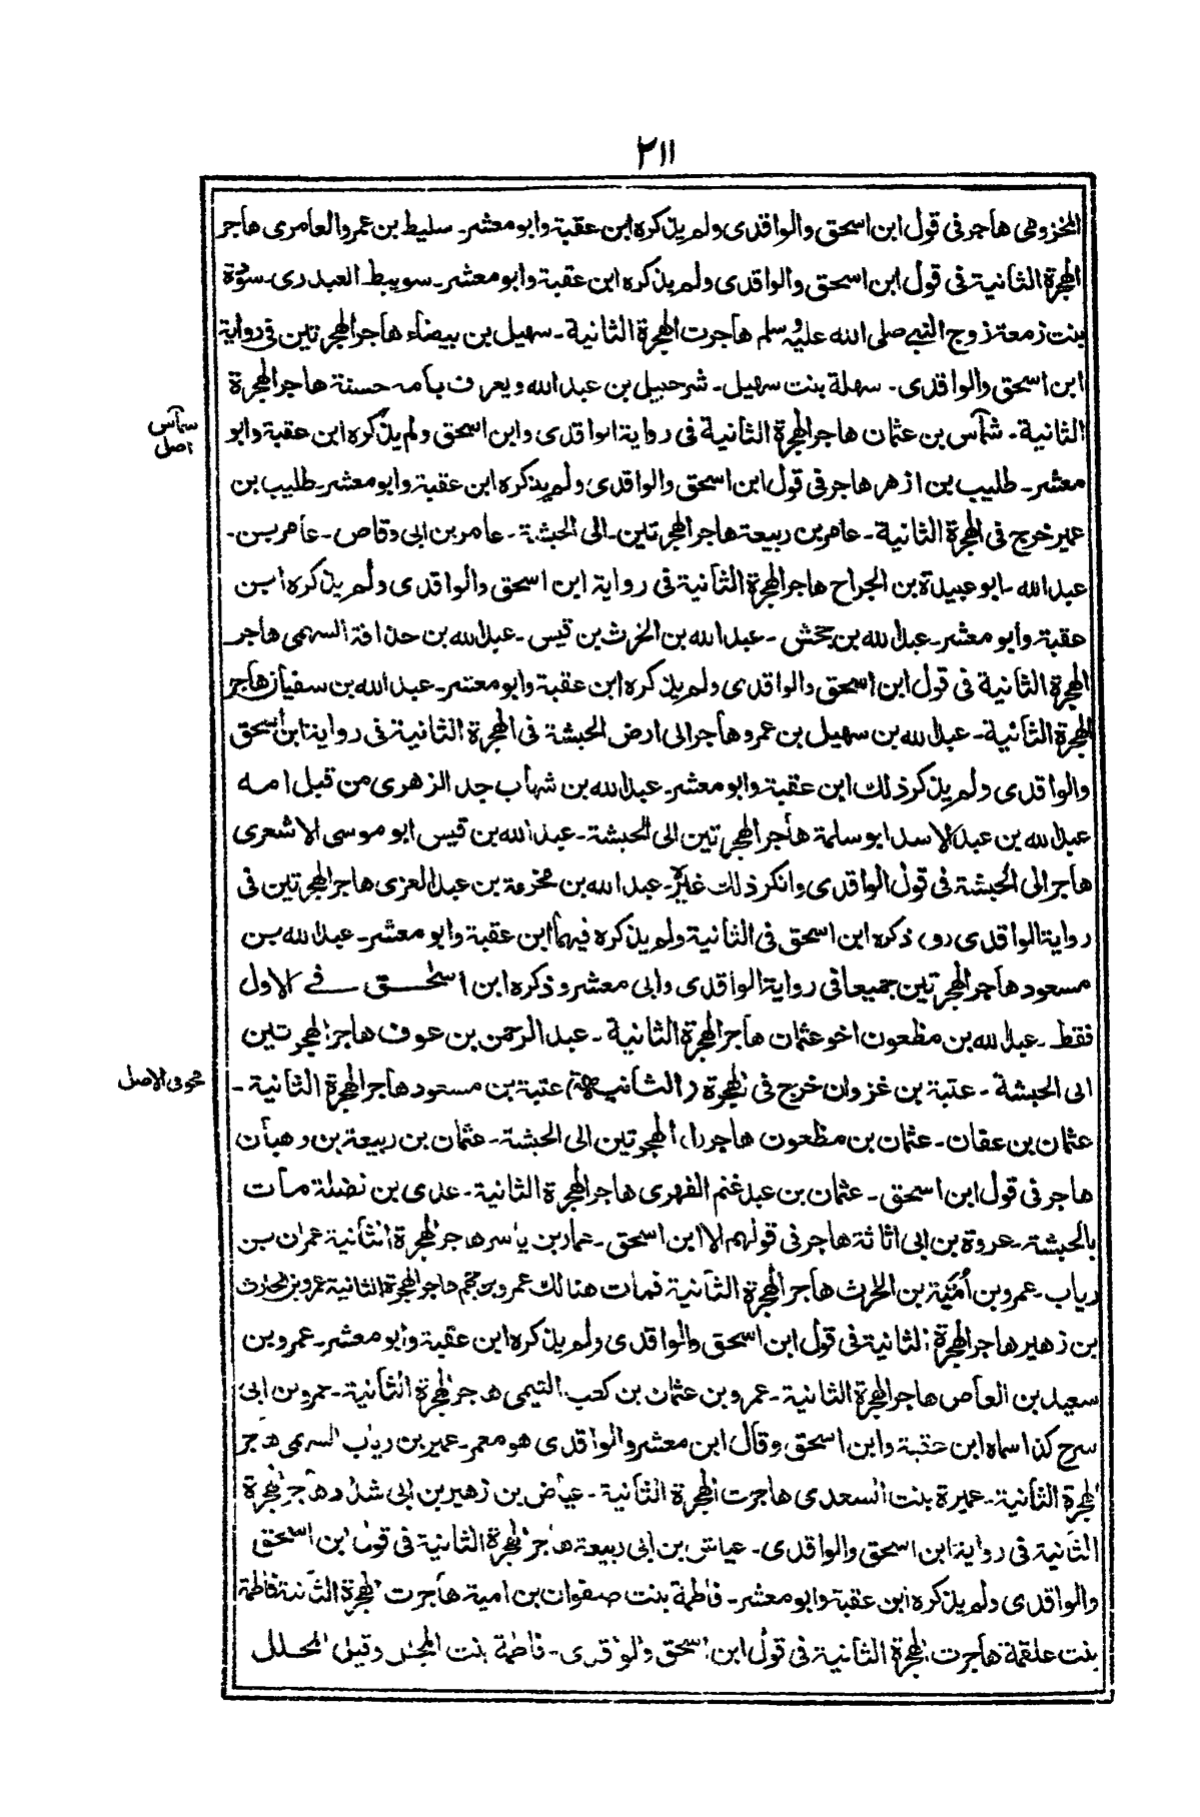 ٢١١
المخزومى هاجر فى قول ابن اسحق والواقدى ولم يذكره ابن عقبة وابو معشر۔ سليط بن عمرو العامرى هاجر
الهجرة الثانية فى قول ابن اسحق والواقدى ولم يذكره ابن عقبة وابو معشر۔ سويبط العبدرى۔ سودة
بنت زمعة زوج النبى صلى الله عليه وسلم هاجرت الهجرة الثانية۔ سهيل بن بيضاء هاجر الهجرتين فى رواية
ابن اسحق والواقدى۔ سهلة بنت سهيل۔ شرحبيل بن عبد الله ويعرف بامه حسنة هاجر الهجرة
الثانية۔ شمآس بن عثمان هاجر الهجرة الثانية فى رواية الواقدى وابن اسحق ولم يذكره ابن عقبة وابو
سمآس
اصل
معشر۔ طليب بن ازهر هاجر فى قول ابن اسحق والواقدى ولم يذكره ابن عقبة وابو معشر۔ طليب بن
عمير خرج فى الهجرة الثانية۔ عامر بن ربيعة هاجر الهجرتين۔ الى الحبشة۔ عامر بن ابى وقاص۔ عامر بن۔
عبد الله۔ ابو عبيدة بن الجراح هاجر الهجرة الثانية فى رواية ابن اسحق والواقدى ولم يذكره ابن
عقبة وابو معشر۔ عبد الله بن جحش۔ عبد الله بن الحرث بن قيس۔ عبد الله بن حذافة السهمى هاجر
الهجرة الثانية فى قول ابن اسحق والواقدى ولم يذكره ابن عقبة وابو معشر۔ عبد الله بن سفيان هاجر
الهجرة الثانية۔ عبد الله بن سهيل بن عمرو هاجر الى ارض الحبشة فى الهجرة الثانية فى رواية ابن اسحق
والواقدى ولم يذكر ذلك ابن عقبة وابو معشر۔ عبد الله بن شهاب جد الزهرى من قبل امه
عبد الله بن عبد الاسد ابو سلمة هاجر الهجرتين الى الحبشة۔ عبد الله بن قيس ابو موسى الاشعرى
هاجر الى الحبشة فى قول الواقدى وانكر ذلك غيره۔ عبد الله بن مخرمة بن عبد العزى هاجر الهجرتين فى
رواية الواقدى (و) ذكره ابن اسحق فى الثانية ولم يذكره فيهما ابن عقبة وابو معشر۔ عبد الله بن
مسعود هاجر الهجرتين جميعا فى رواية الواقدى وابى معشر وذكره ابن اسحق فى الاول
فقط۔ عبد الله بن مظعون اخو عثمان هاجر الهجرة الثانية۔ عبد الرحمن بن عوف هاجر الهجرتين
الى الحبشة۔ عتبة بن غزوان خرج فى الهجرة (الثانية) عتبة بن مسعود هاجر الهجرة الثانية۔
محو فى الاصل
عثمان بن عفان۔ عثمان بن مظعون هاجر الهجرتين الى الحبشة۔ عثمان بن ربيعة بن وهبان
هاجر فى قول ابن اسحق۔ عثمان بن عبد غنم الفهرى هاجر الهجرة الثانية۔ عدى بن نضلة مات
بالحبشة۔ عروة بن ابى اثاثة هاجر فى قولهم الا ابن اسحق۔ عمار بن ياسر هاجر الهجرة الثانية عمران بن
رياب۔ عمرو بن اُمَيّة بن الحرث هاجر الهجرة الثانية فمات هنالك عمرو بن جهم هاجر الهجرة الثانية عمرو بن الحرث
بن زهير هاجر الهجرة الثانية فى قول ابن اسحق والواقدى ولم يذكره ابن عقبة وابو معشر۔ عمرو بن
سعيد بن العاص هاجر الهجرة الثانية۔ عمرو بن عثمان بن كعب التيمى هاجر الهجرة الثانية۔ عمرو بن ابى
سرح كذا سماه ابن عقبة وابن اسحق وقال ابن معشر والواقدى هو معمر۔ عمير بن رياب السهمى هاجر
الهجرة الثانية۔ عميرة بنت السعدى هاجرت الهجرة الثانية۔ عياض بن زهير بن ابى شداد هاجر الهجرة
الثانية فى رواية ابن اسحق والواقدى۔ عياش بن ابى ربيعة هاجر الهجرة الثانية فى قول ابن اسحق
والواقدى ولم يذكره ابن عقبة وابو معشر۔ فاطمة بنت صفوان بن امية هاجرت الهجرة الثانية فاطمة
بنت علقمة هاجرت الهجرة الثانية فى قول ابن اسحق والواقدى۔ فاطمة بنت المجلل وقيل المحلل